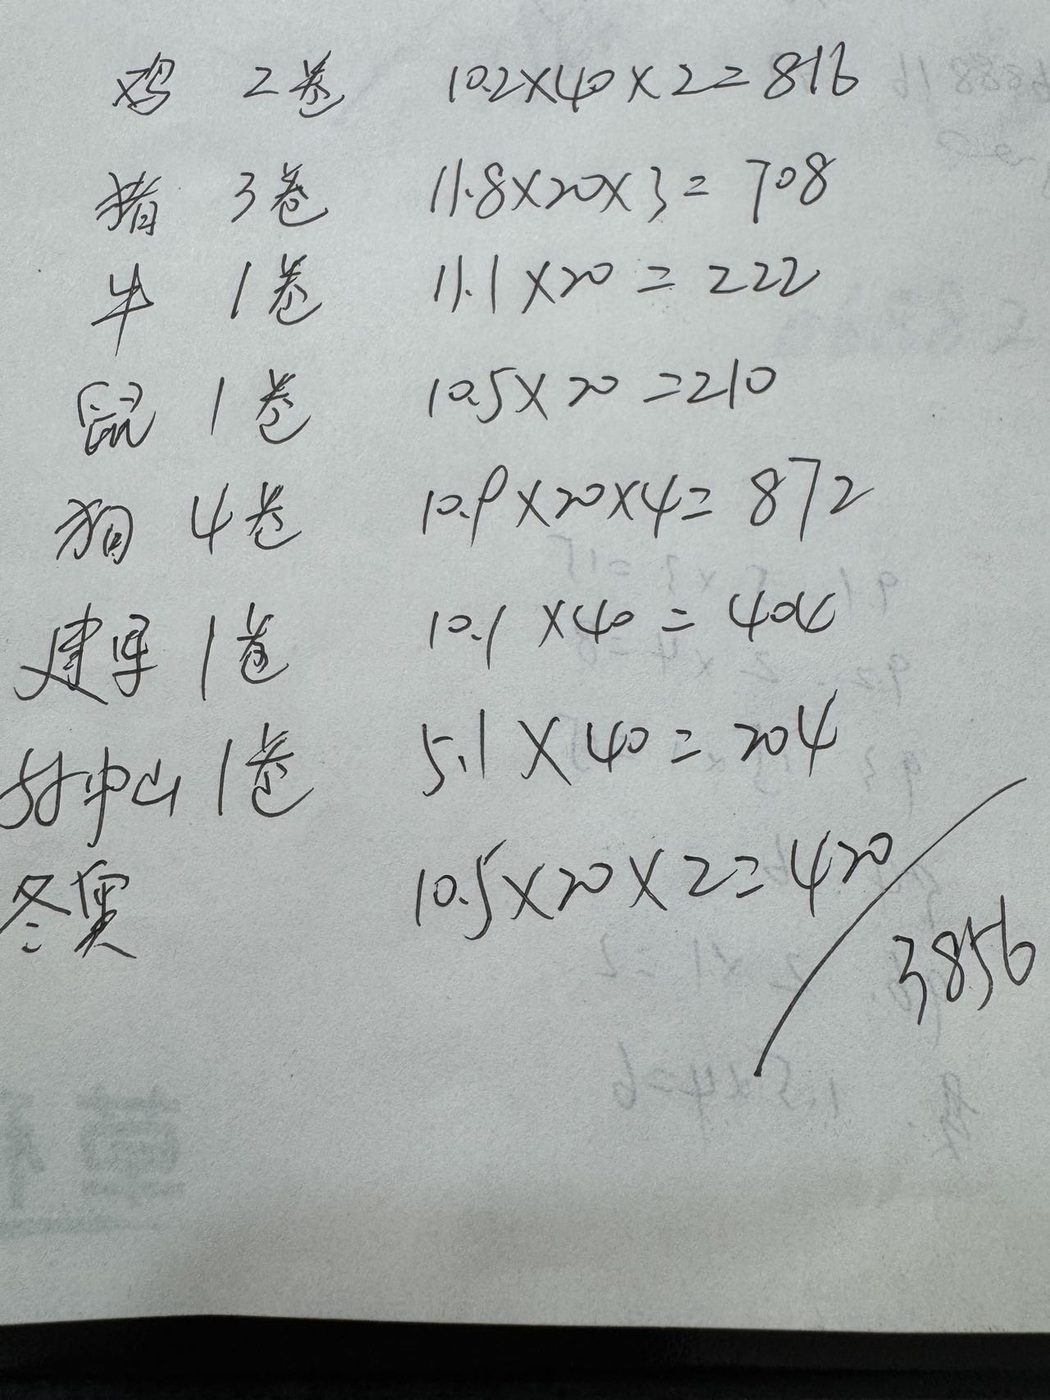 鸡 2卷 10.2×40×2=816
猪 3卷 11.8×20×3=708
牛 1卷 11.1×20=222
鼠 1卷 10.5×20=210
狗 4卷 10.9×20×4=872
建军 1卷 10.1×40=404
孙中山 1卷 5.1×40=204
冬奥 10.5×20×2=420
3856